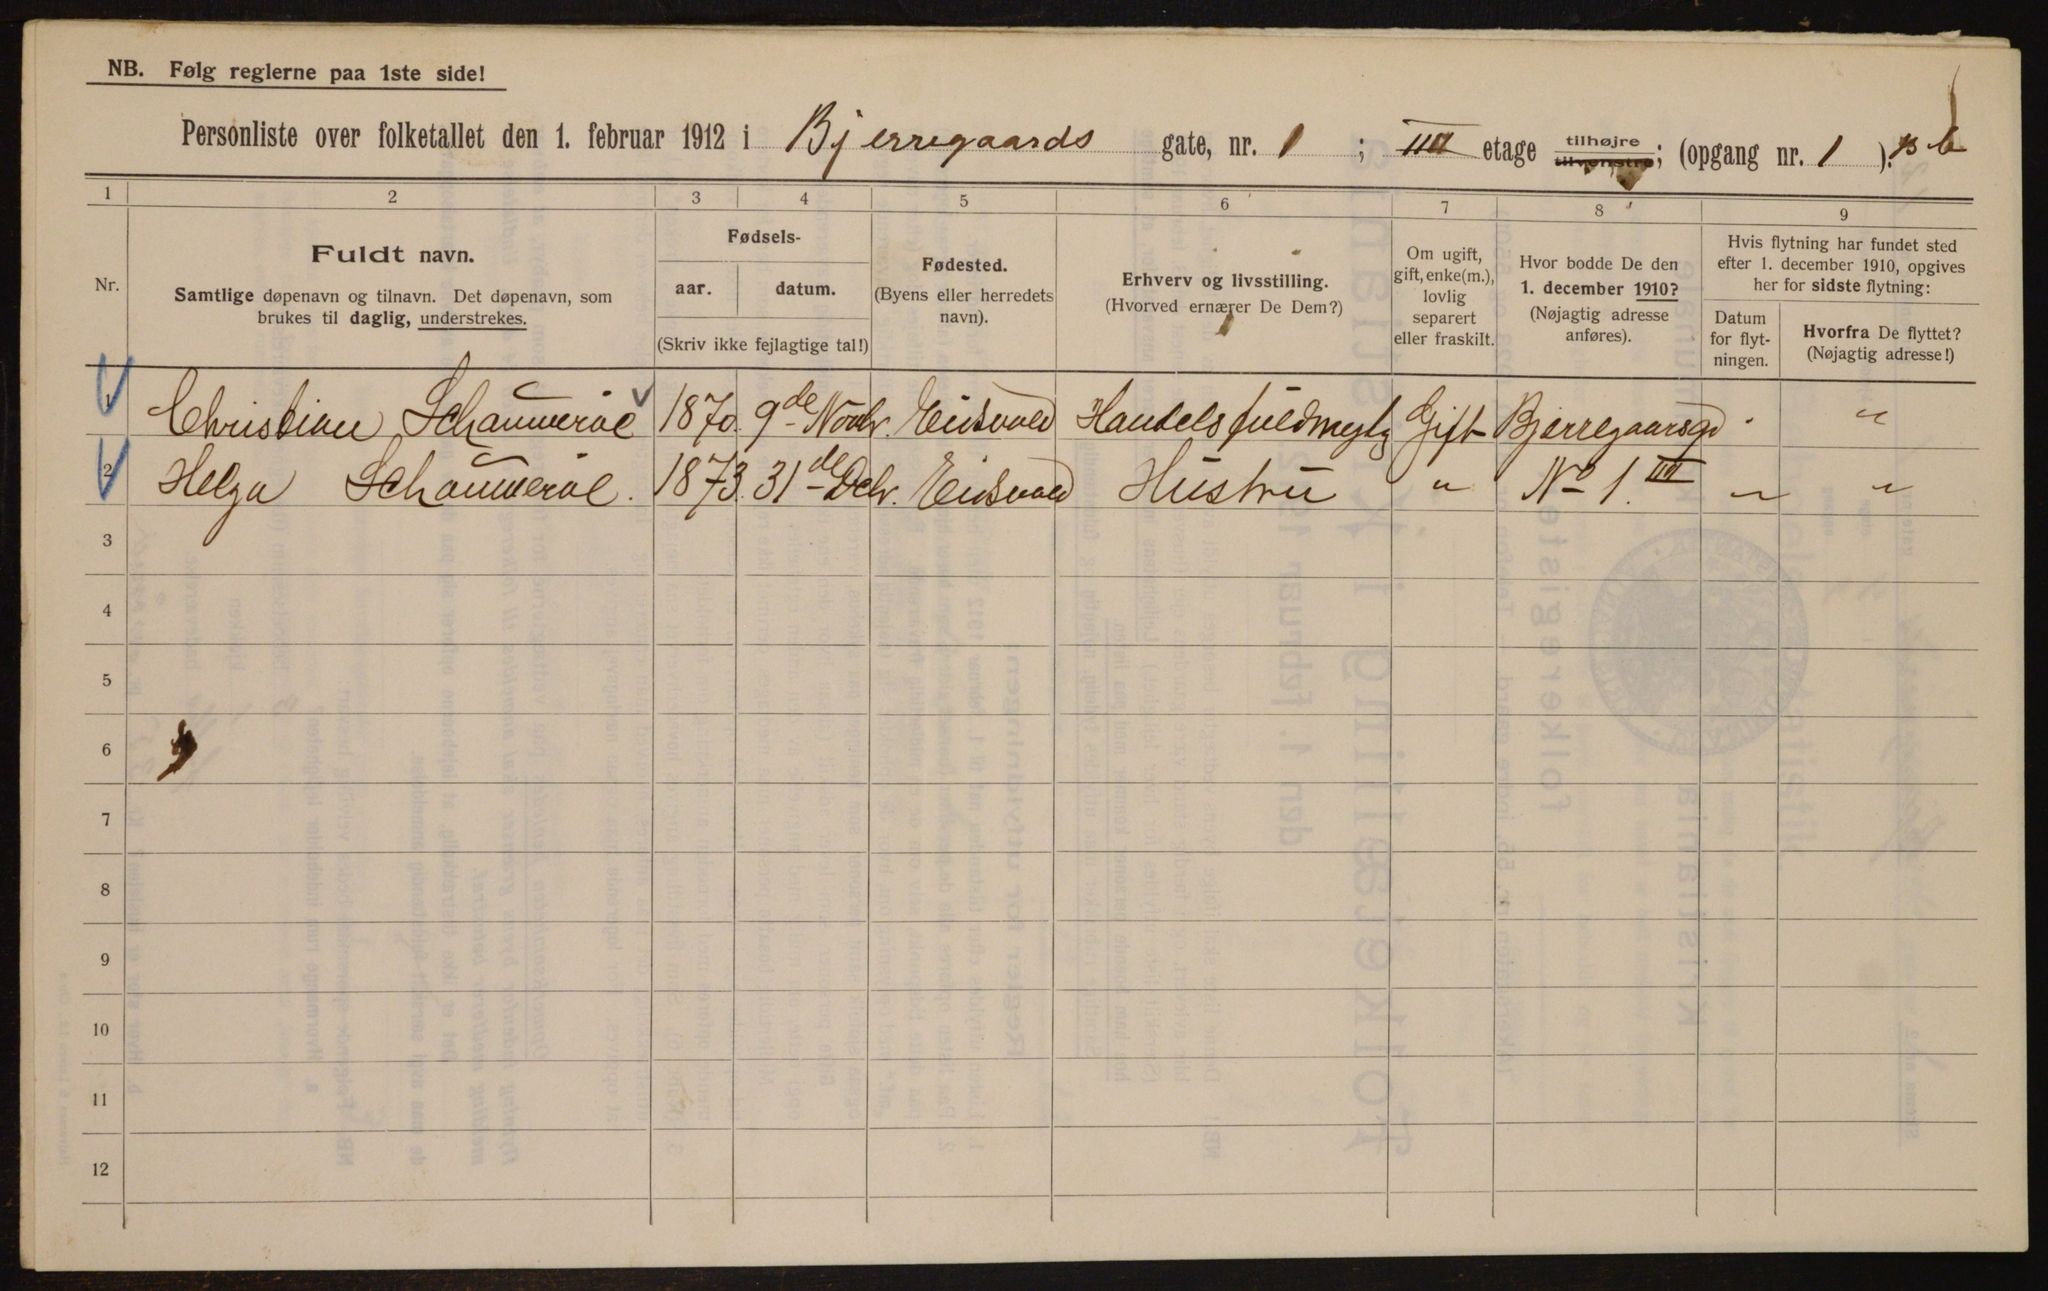 NB. Følg reglerne paa 1ste side!
Personliste over folketallet den 1. februar 1912 i Bjerregaards gate, nr. 1 ; III etage tilhøjre tilvenstre; (opgang nr. 1 ). b
1 2 3 4 5 6 7 8 9
Nr.
Fuldt navn.
Samtlige døpenavn og tilnavn. Det døpenavn, som
brukes til daglig, understrekes.
Fødsels-
aar. datum.
(Skriv ikke fejlagtige tal!)
Fødested.
(Byens eller herredets
navn).
Erhverv og livsstilling.
(Hvorved ernærer De Dem?)
Om ugift,
gift, enke(m.),
lovlig
separert
eller fraskilt.
Hvor bodde De den
1. december 1910?
(Nøjagtig adresse
anføres).
Hvis flytning har fundet sted
efter 1. december 1910, opgives
her for sidste flytning:
Datum
for flyt-
ningen.
Hvorfra De flyttet?
(Nøjagtig adresse!)
1 Christian 1870 9de Novbr. Eidsvold Gift Bjerregaarsgd "
2 Helga 1873 31de Decbr. Eidsvold Hustru " No 1 III " "
3
4
5
6
7
8
9
10
11
12